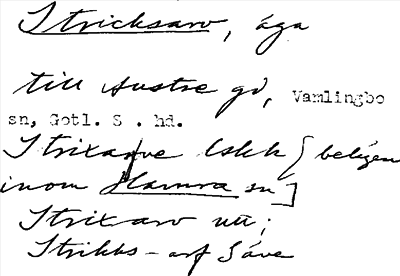 Stricksarv, äga
till Austre gd, Vamlingbo
sn, Gotl. S . hd.
Strixarve [belägen
inom Hamra sn]
Strixarv utt;
Strikks-arf Säve